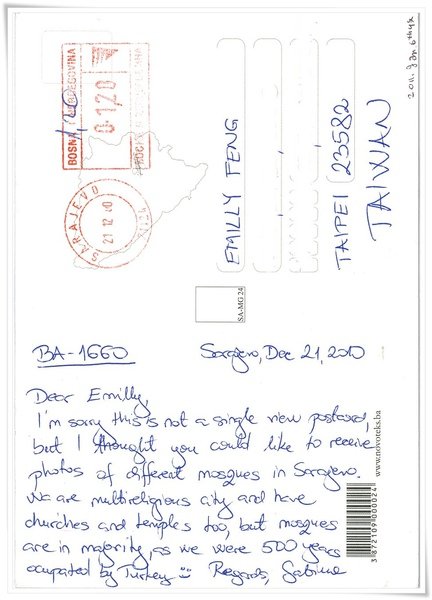 BA-1660
Sarajevo, Dec 21, 2010
Dear Emilly,
I'm sorry this is not a single view postcard,
but I thought you could like to receive
photos of different mosques in Sarajevo.
We are multireligious city and have
churches and temples too, but mosques
are in majority, as we were 500 years
ocupated by Turkey
Regards, Sabina
EMILLY FENG
TAIPEI 23582
TAIWAN
BOSNA I HERCEGOVINA
0120
1,20
SARAJEVO
21 12 10
SA-MG 24
www.novoteks.ba
3 872109 000024